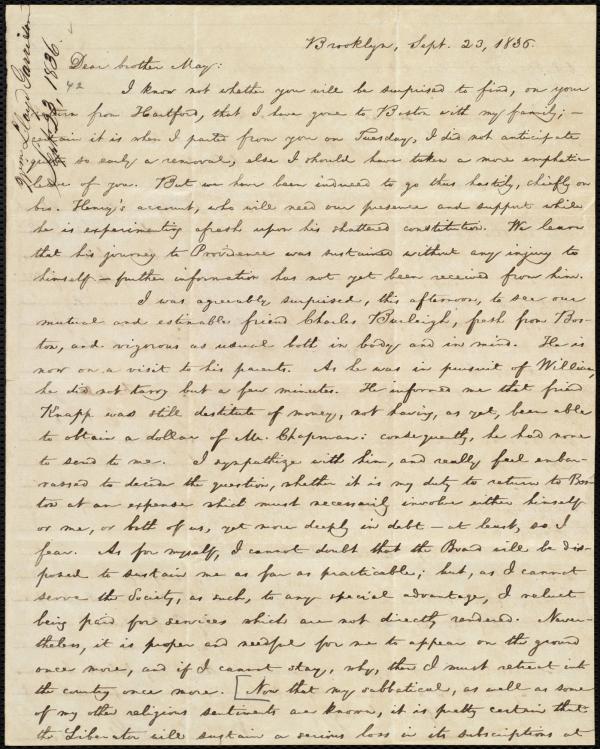 Wm Lloyd Garrison
Sept. 23, 1836.
Brooklyn, Sept. 23, 1836.
Dear brother May:
42
I know not whether you will be surprised to find, on your
return from Hartford, that I have gone to Boston with my family; —
certain it is when I parted from you on Tuesday, I did not anticipate
quite so early a removal, else I should have taken a more emphatic
leave of you. But we have been induced to go thus hastily, chiefly on
bro. Henry's account, who will need our presence and support while
he is experimenting afresh upon his shattered constitution. We learn
that his journey to Providence was sustained without any injury to
himself — further information has not yet been received from him.
I was agreeably surprised, this afternoon, to see our
mutual and estimable friend Charles Burleigh, fresh from Bos-
ton, and vigorous as usual both in body and in mind. He is
now on a visit to his parents. As he was in pursuit of William,
he did not tarry but a few minutes. He informed me that friend
Knapp was still destitute of money, not having, as yet, been able
to obtain a dollar of Mr. Chapman: consequently, he had none
to send to me. I sympathize with him, and really feel embar-
rassed to decide the question, whether it is my duty to return to Bos-
ton at an expense which must necessarily involve either himself
or me, or both of us, yet more deeply in debt — at least, so I
fear. As for myself, I cannot doubt that the Board will be dis-
posed to sustain me as far as practicable; but, as I cannot
serve the Society, as such, to any special advantage, I reluct
being paid for services which are not directly rendered. Never-
theless, it is proper and needful for me to appear on the ground
once more, and if I cannot stay, why, then I must retreat into
the country once more. [Now that my sabbatical, as well as some
of my other religious sentiments are known, it is pretty certain that
the Liberator will sustain a serious loss in its subscriptions at